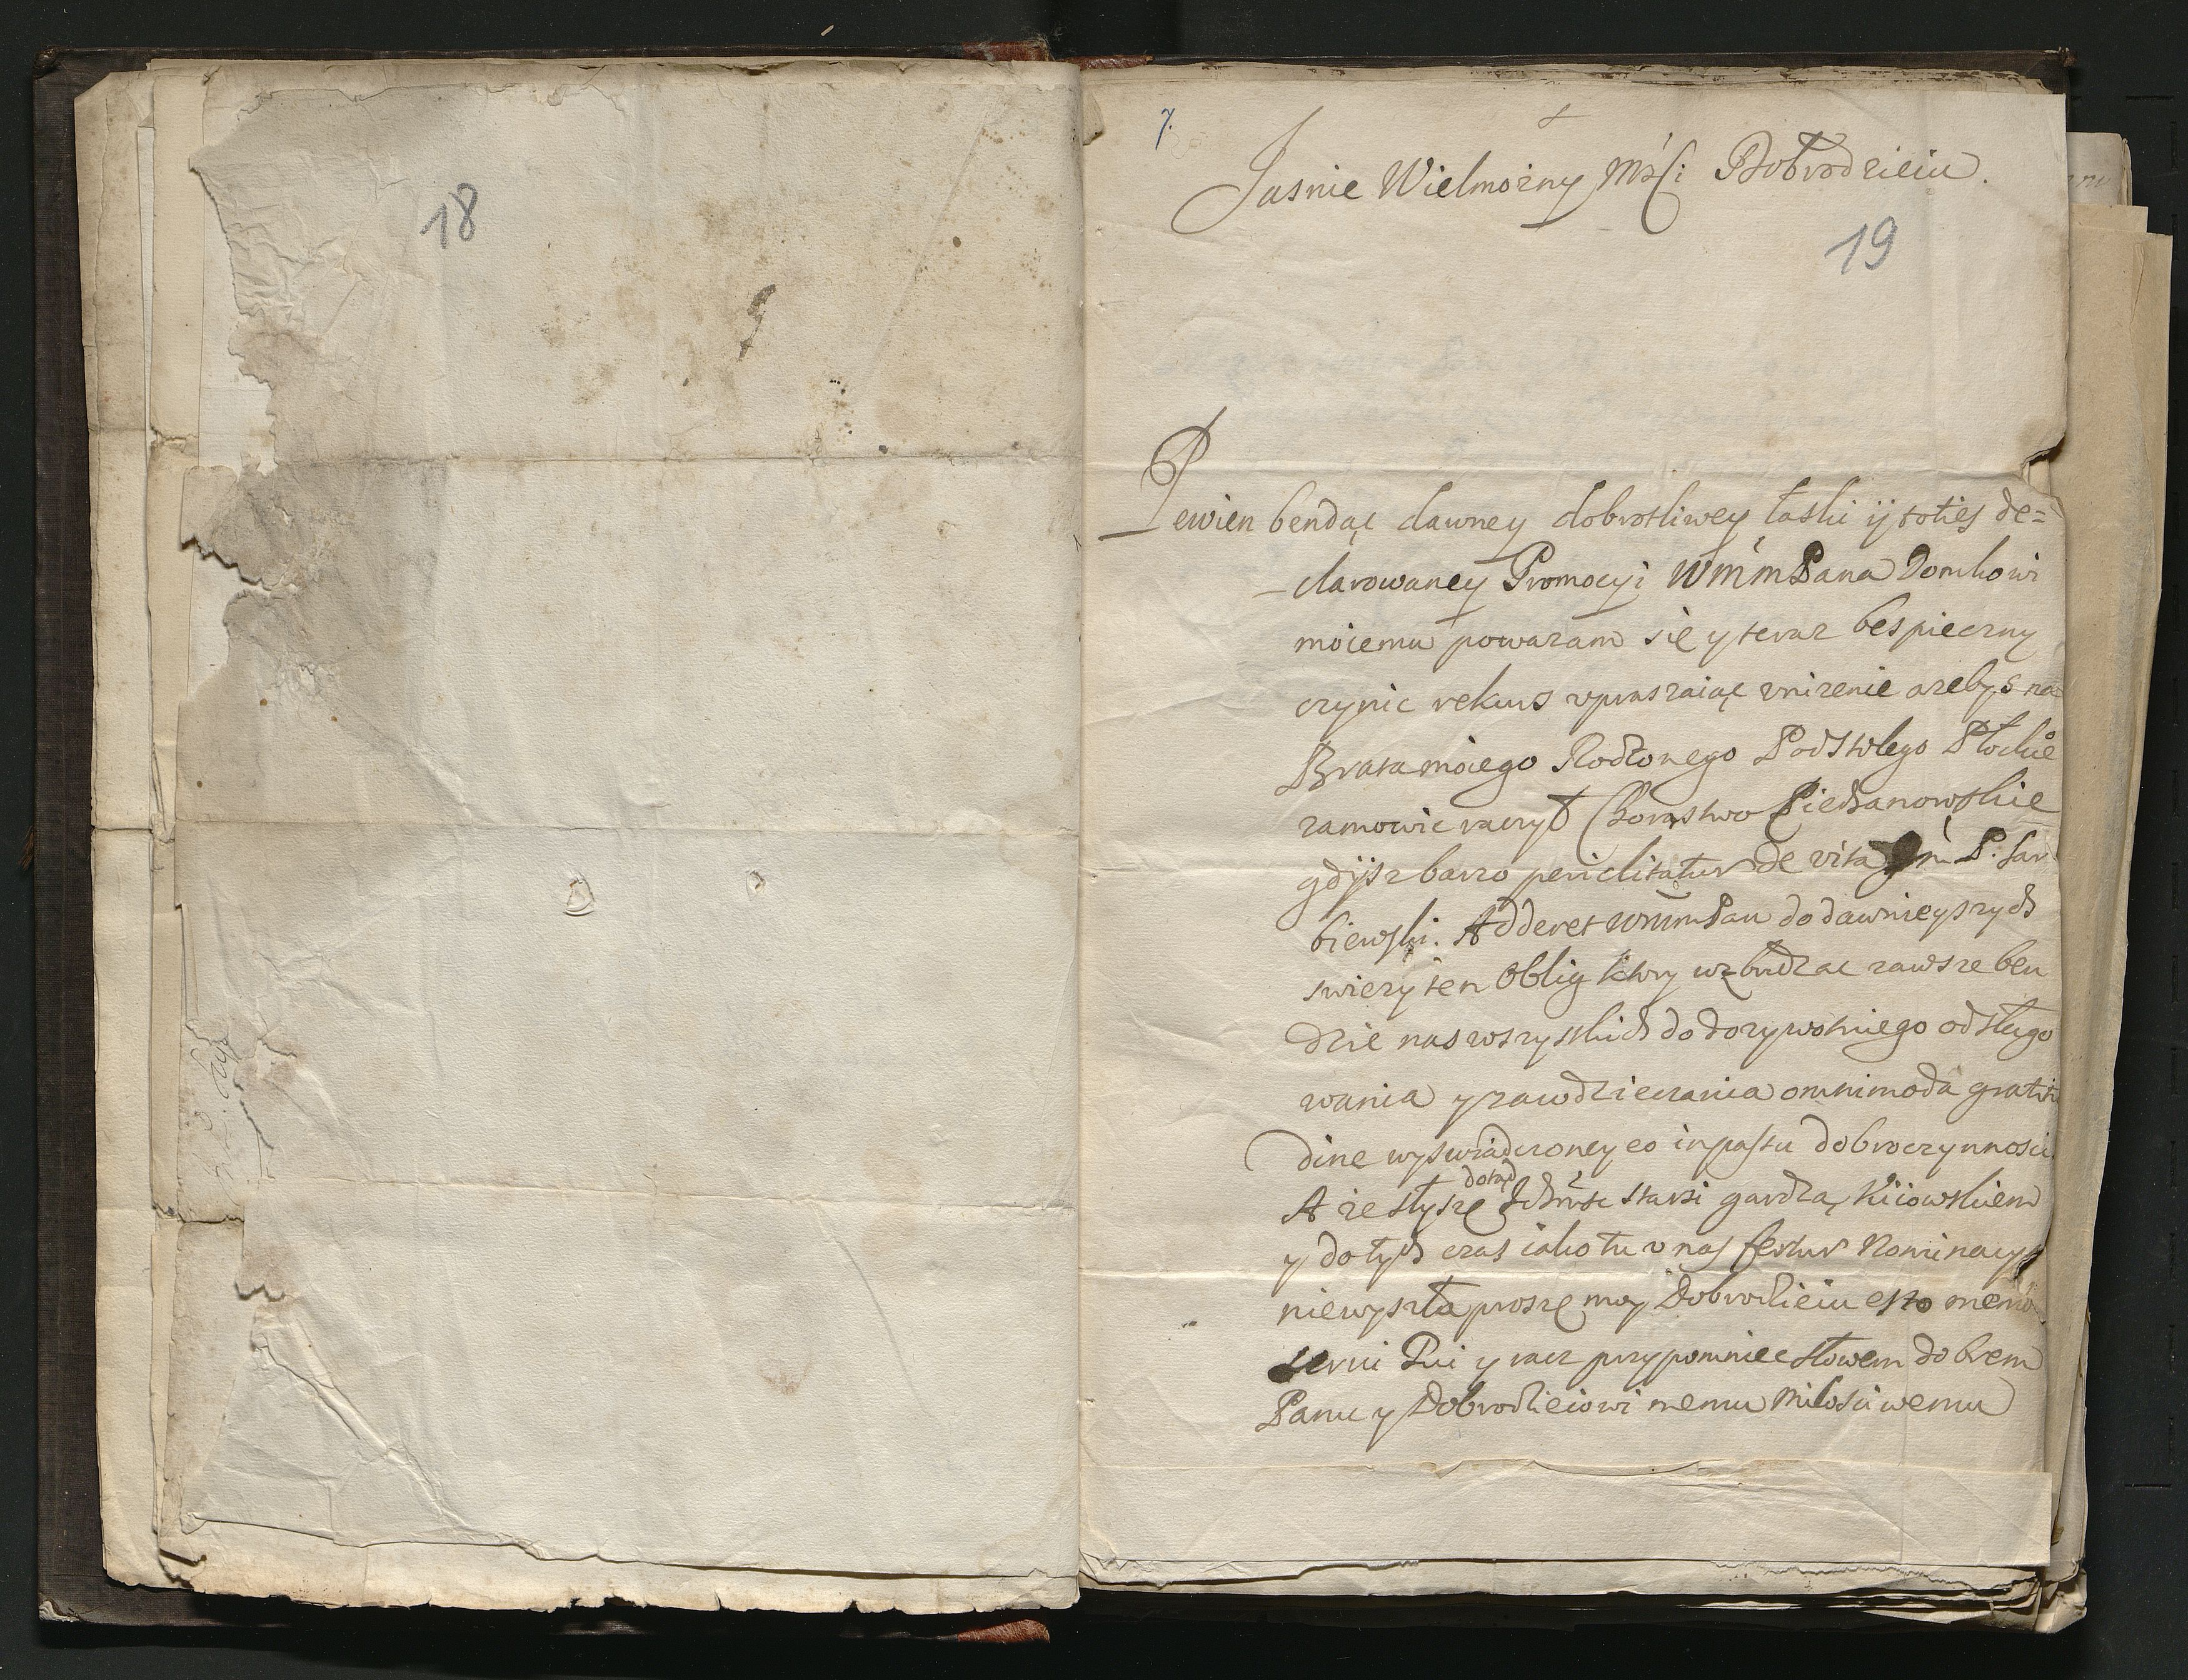 18
7.
Jasnie Wielmozny Mśći Dobrodzieiu.
19
Pewien bendąc dawney dobrotliwey łaski ij toties de=
clarowaney Promocyi WmmPana Domkowi
moiemu powazam się y teraz bespieczny
czynic rekurs upraszaiąc unizenie azebys na
Brata moiego Rodzonego Podstolego Płockie
zamowic raczył
gdijsz barzo periclitatur de vita P. Sar
biewski. Adderet WmmPan do dawnieyszych
swiezy ten Oblig ktory wzbudzac zawsze ben
dzie nas wszystkich do dozywotniego odsługo
wania y zawdzieczania omnimoda gratitu
dine wyswiadczoney eo in passu dobroczynnosci.
A ze słyszę dotąd starsi gardzą Kiiowskiem
y do tych czas iako tu u nas fertur Nominacya
niewyszła proszę moy Dobrodzieiu esto memor
servi Tui y racz przypomniec słowem dobrem
Panu y Dobrodzieiowi memu Miłosciwemu